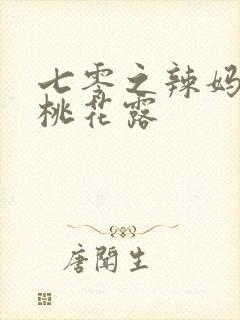 七零之辣妈
桃花露
唐闻生